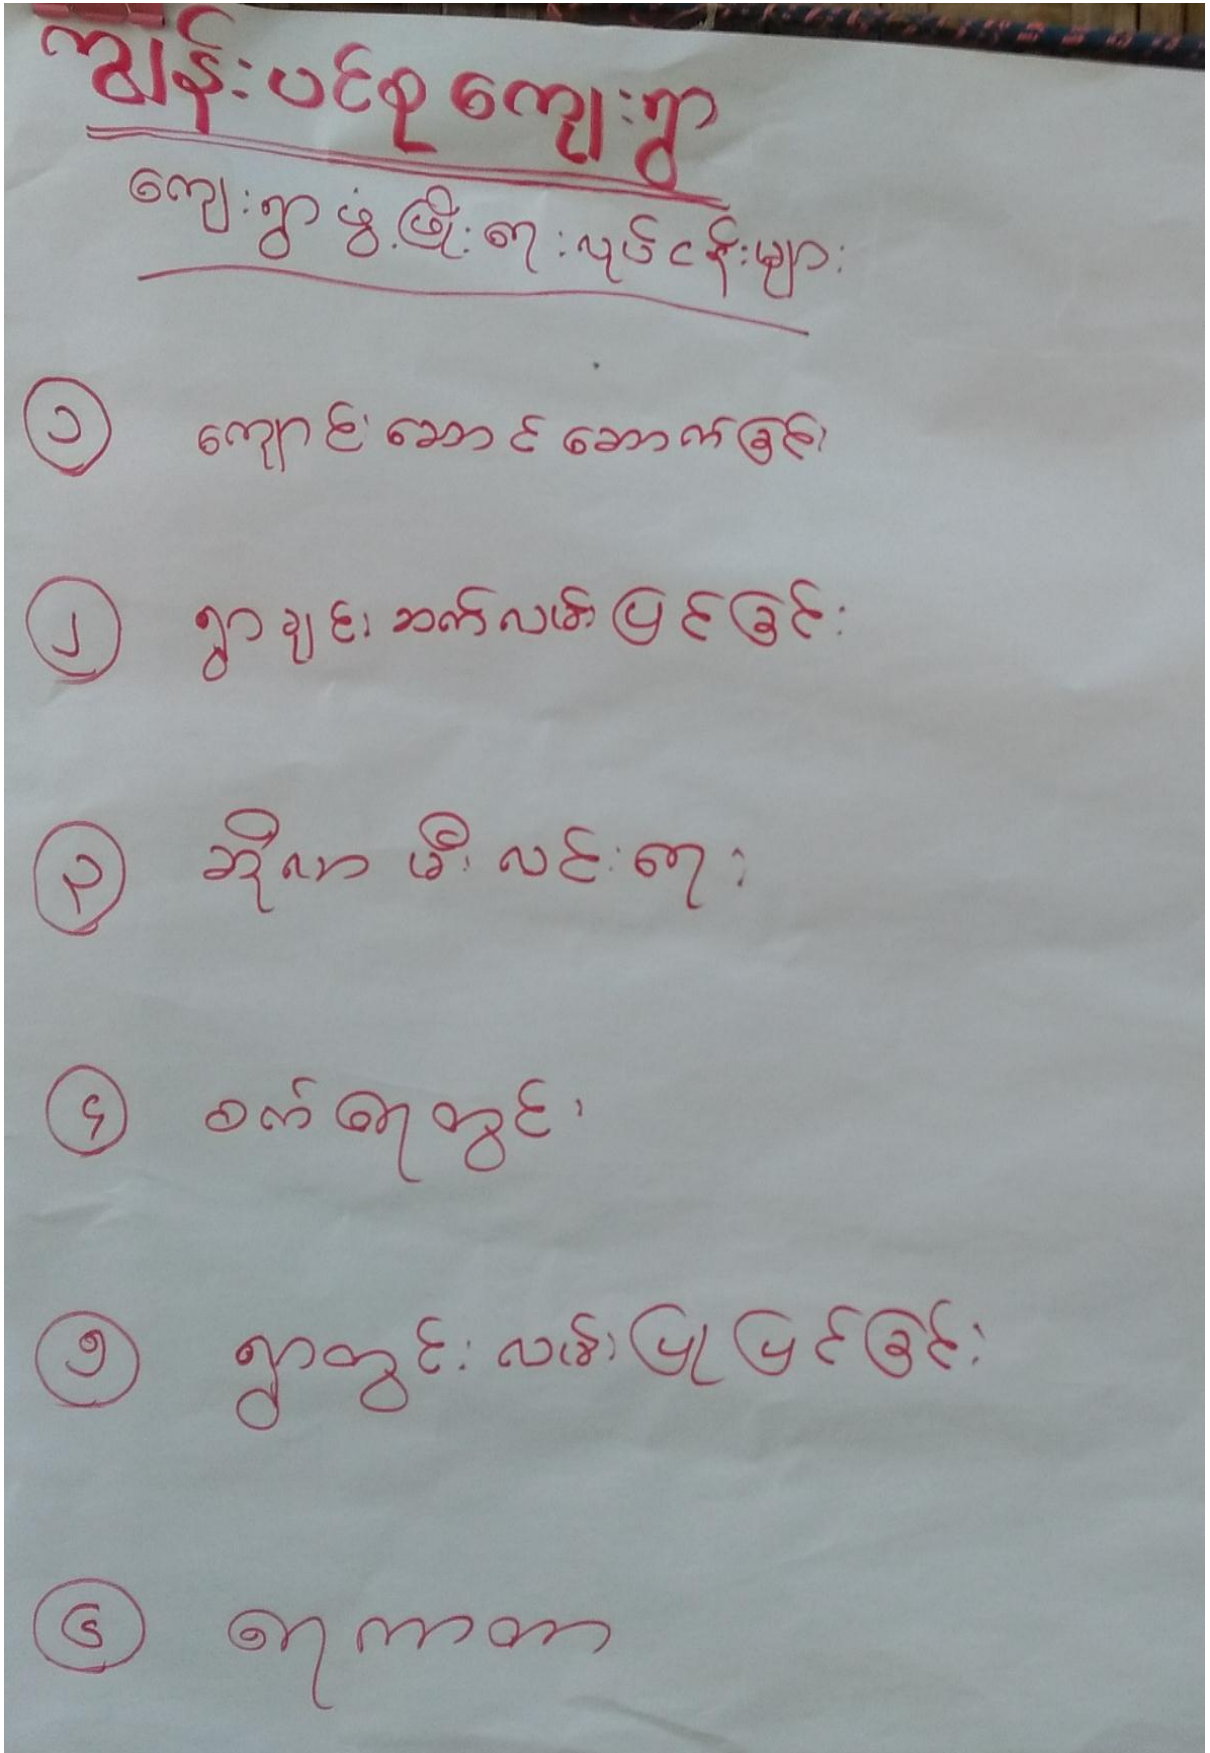 ကျွန်းပင်စု ကျေးရွာ
ကျေးရွာဖွံ့ဖြိုးရေးလုပ်ငန်းများ
၁ ကျောင်းဆောင်ဆောက်ခြင်း
၂ ရွာချင်းဆက်လမ်းပြင်ခြင်း
၃ ဆိုလာမီးလင်းရေး
၄ စက်ရေတွင်း
၅ ရွာတွင်းလမ်းပြုပြင်ခြင်း
၆ ရေကာတာ